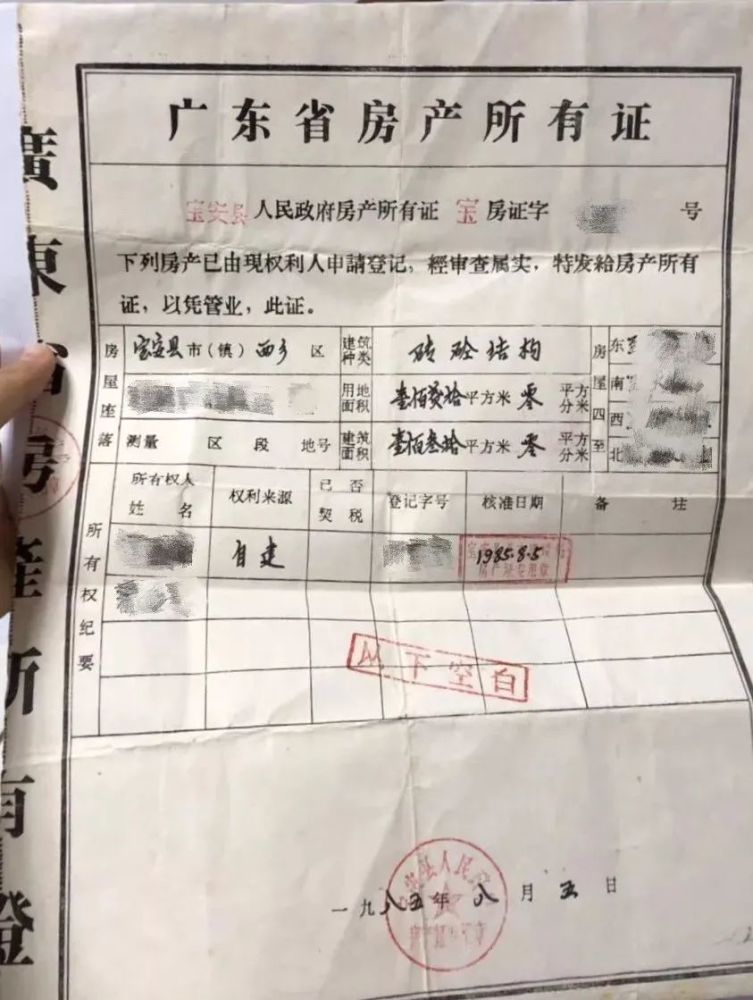 广东省房产所有证
宝安县人民政府房产所有证 宝 房证字 号
下列房产已由现权利人申請登记，經审查属实，特发給房产所有
证，以凭管业，此证。
房屋座落 宝安县市（镇）西乡 区 建筑种类 砖砼结构 房屋四至 东
用地面积 壹佰叁拾平方米 零 平方分米 南
西
测量 区 段 地号 建筑面积 壹佰叁拾平方米 零 平方分米 北
所有权纪要
所有权人姓名 权利来源 已否契税 登记字号 核准日期 备 注
自建 1985.8.5
以下空白
一九八五年八月五日
廣東省房產所有證